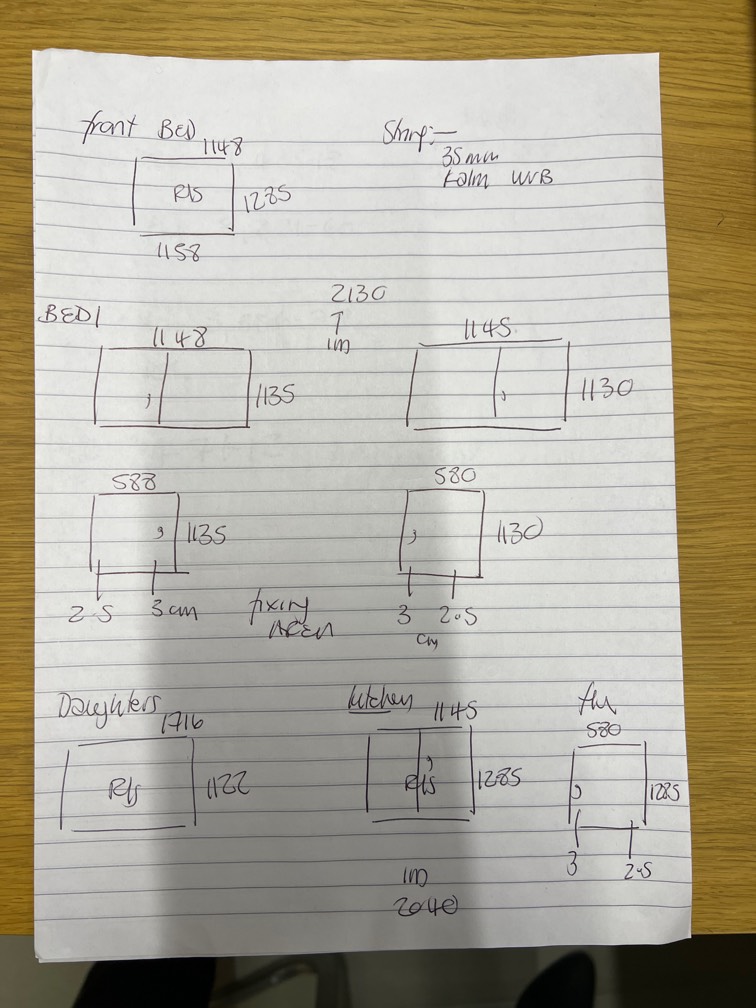 front BED
1148
R/s
1285
1158
Shny:-
35mm
Kalm WB
BED1
2130
↑
1m
1148
1135
1145
1130
588
1135
2.5 3cm
fixing
AREA
580
1130
3 2.5
cm
Daughters
1716
R/s
1122
kitchen
1145
R/s
1285
1m
2040
580
1285
3 2.5